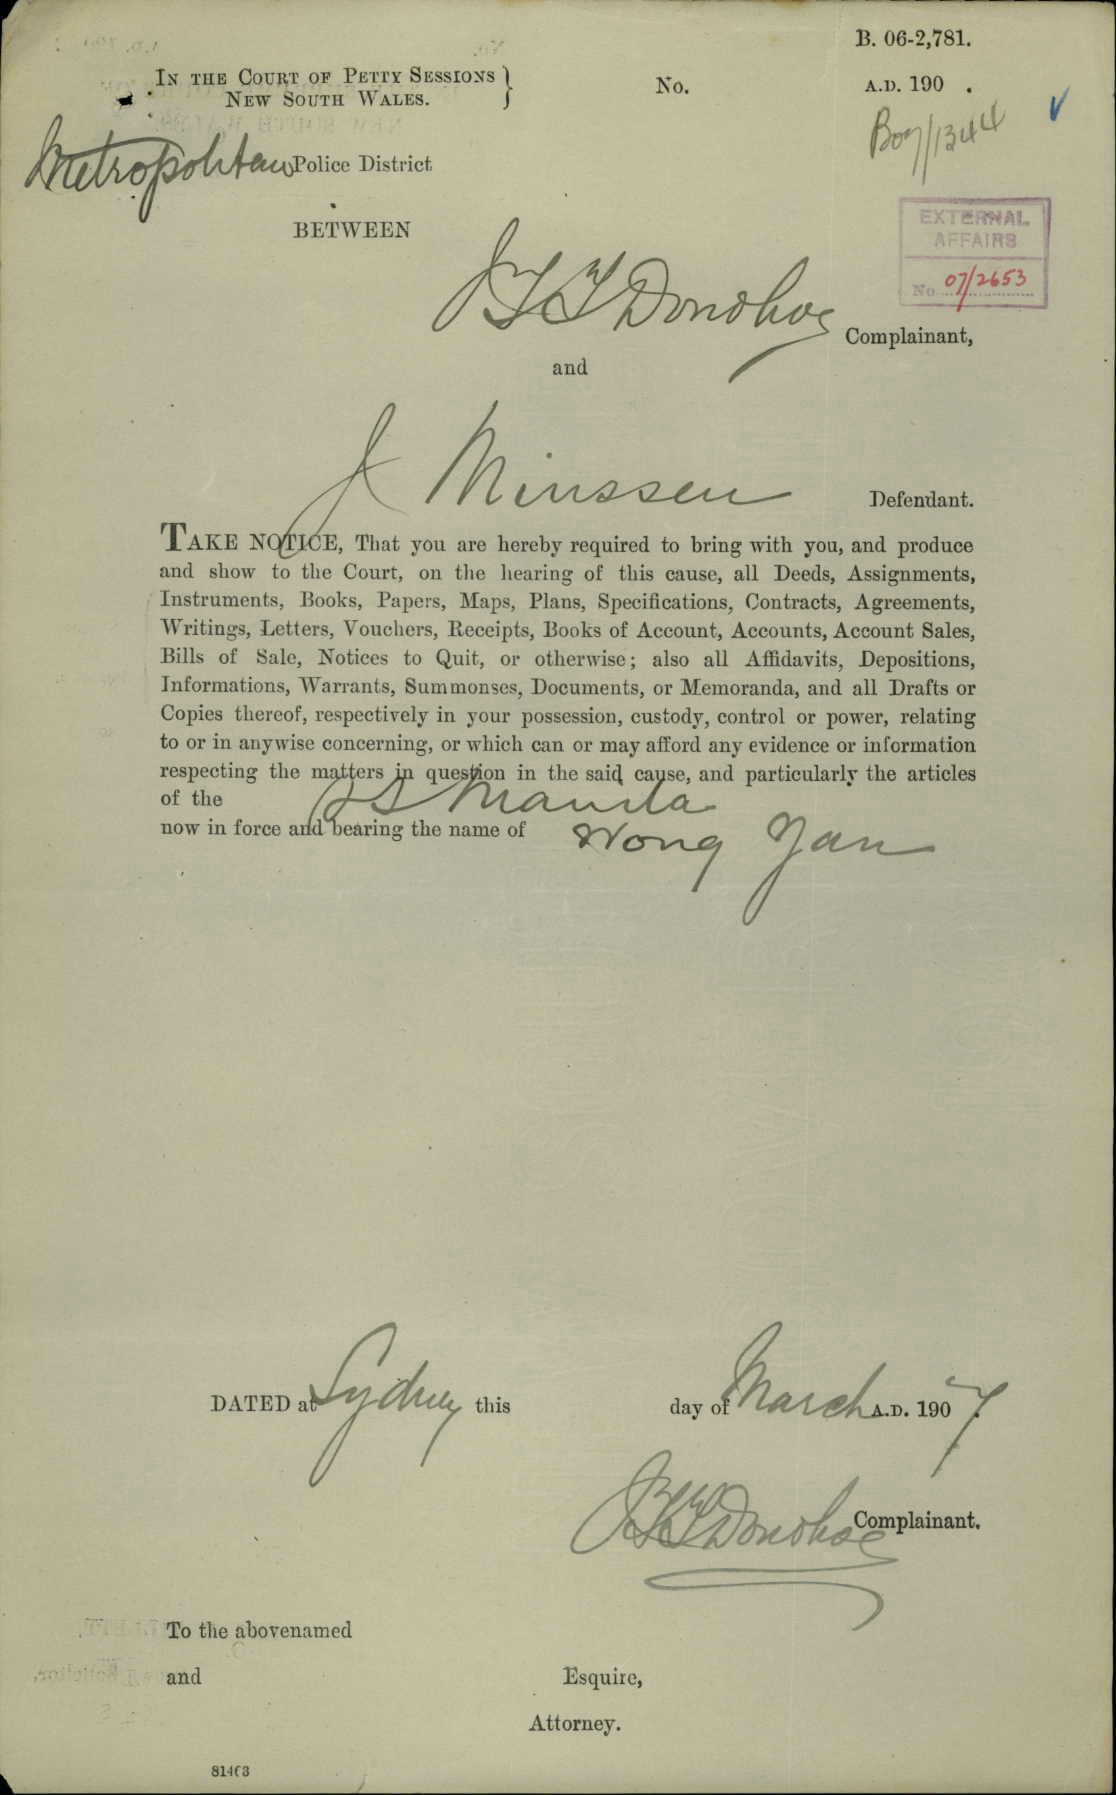 B. 06-2,781.
IN THE COURT OF PETTY SESSIONS
NEW SOUTH WALES.
No.
A.D. 190 .
B07/1344
Metropolitan Police District
BETWEEN
EXTERNAL
AFFAIRS
No 07/2653
J T T Donohoe Complainant,
and
J Minssen Defendant.
TAKE NOTICE, That you are hereby required to bring with you, and produce
and show to the Court, on the hearing of this cause, all Deeds, Assignments,
Instruments, Books, Papers, Maps, Plans, Specifications, Contracts, Agreements,
Writings, Letters, Vouchers, Receipts, Books of Account, Accounts, Account Sales,
Bills of Sale, Notices to Quit, or otherwise; also all Affidavits, Depositions,
Informations, Warrants, Summonses, Documents, or Memoranda, and all Drafts or
Copies thereof, respectively in your possession, custody, control or power, relating
to or in anywise concerning, or which can or may afford any evidence or information
respecting the matters in question in the said cause, and particularly the articles
of the SS Manila
now in force and bearing the name of Wong Yan
DATED at Sydney this day of March A.D. 1907.
J T T Donohoe Complainant.
To the abovenamed
and Esquire,
Attorney.
81463